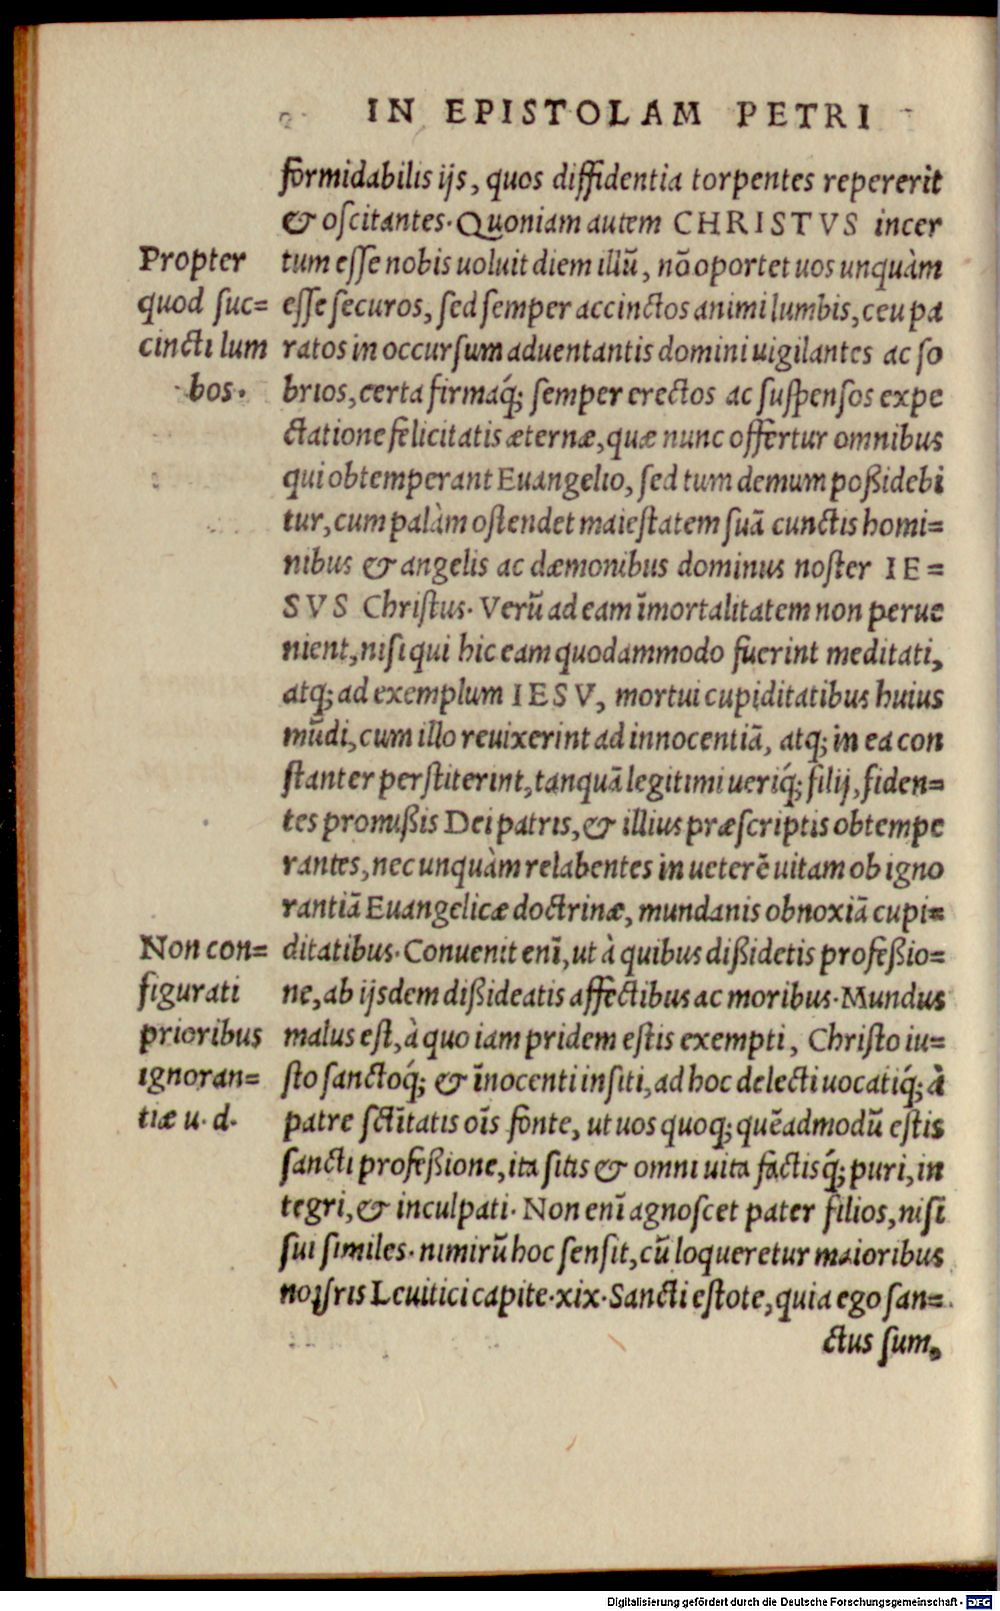 IN EPISTOLAM PETRI
formidabilis ijs, quos diffidentia torpentes repererit
& oscitantes. Quoniam autem CHRISTVS incer
tum esse nobis uoluit diem illũ, nõ oportet uos unquàm
esse securos, sed semper accinctos animi lumbis, ceu pa
ratos in occursum aduentantis domini uigilantes ac so
brios, certa firmaq́; semper erectos ac suspensos expe
ctatione felicitatis æternæ, quæ nunc offertur omnibus
qui obtemperant Euangelio, sed tum demum poßidebi
tur, cum palàm ostendet maiestatem suã cunctis homi=
nibus & angelis ac dæmonibus dominus noster IE=
SVS Christus. Verũ ad eam ĩmortalitatem non perue
nient, nisi qui hic eam quodammodo fuerint meditati,
atq; ad exemplum IESV, mortui cupiditatibus huius
mũdi, cum illo reuixerint ad innocentiã, atq; in ea con
stanter perstiterint, tanquã legitimi ueriq́; filij, fiden=
tes promißis Dei patris, & illius præscriptis obtempe
rantes, nec unquàm relabentes in ueterẽ uitam ob igno
rantiã Euangelicæ doctrinæ, mundanis obnoxiã cupi=
ditatibus. Conuenit enĩ, ut à quibus dißidetis profeßio=
ne, ab ijsdem dißideatis affectibus ac moribus. Mundus
malus est, à quo iam pridem estis exempti, Christo iu=
sto sanctoq́; & ĩnocenti insiti, ad hoc delecti uocatiq́; à
patre sctĩtatis oĩs fonte, ut uos quoq; quẽadmodũ estis
sancti profeßione, ita sitis & omni uita factisq́; puri, in
tegri, & inculpati. Non enĩ agnoscet pater filios, nisi
sui similes. nimirũ hoc sensit, cũ loqueretur maioribus
nostris Leuitici capite. xix. Sancti estote, quia ego san=
ctus sum,
Propter
quod suc=
cincti lum
bos.
Non con=
figurati
prioribus
ignoran=
tiæ u. d.
Digitalisierung gefördert durch die Deutsche Forschungsgemeinschaft - DFG